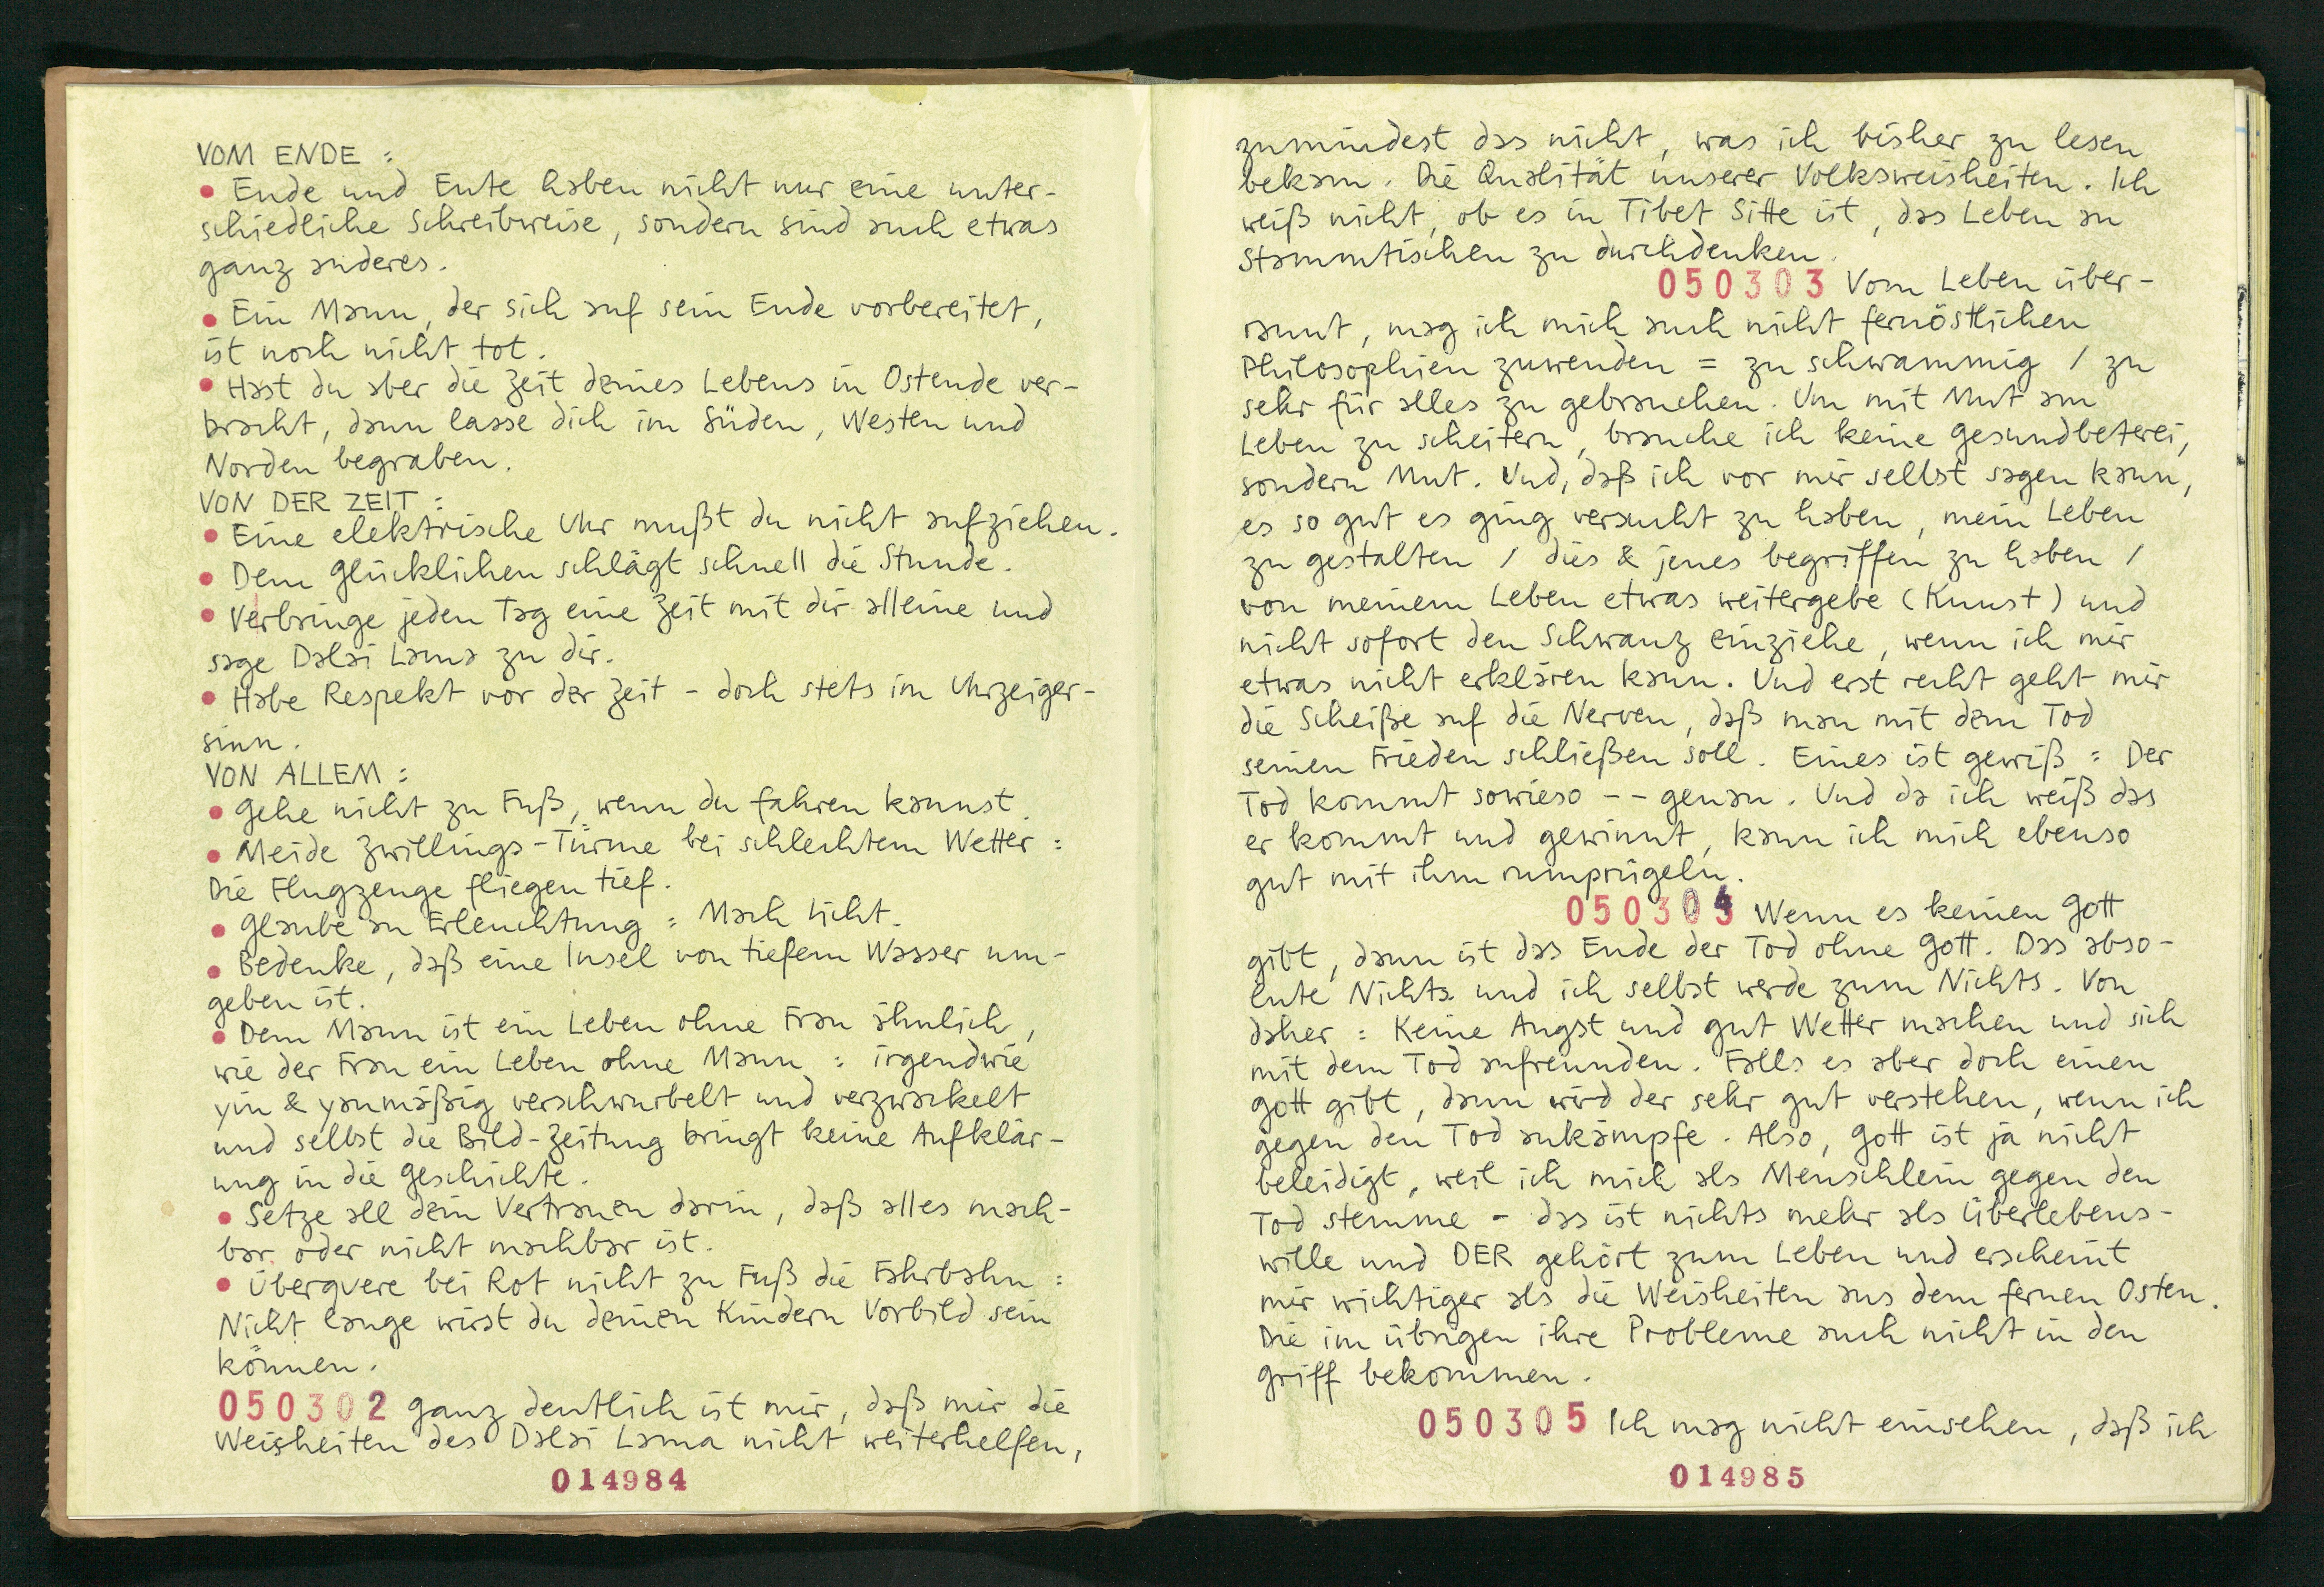 VOM ENDE :
• Ende und Ente haben nicht nur eine unter-
schiedliche Schreibweise, sondern sind auch etwas
ganz anderes.
• Ein Mann, der sich auf sein Ende vorbereitet,
ist noch nicht tot.
• Hast du aber die Zeit deines Lebens in Ostende ver-
bracht, dann lasse dich im Süden, Westen und
Norden begraben.
VON DER ZEIT :
• Eine elektrische Uhr mußt du nicht aufziehen.
• Dem Glücklichen schlägt schnell die Stunde.
• Verbringe jeden Tag eine Zeit mit dir alleine und
sage Dalai Lama zu dir.
• Habe Respekt vor der Zeit - doch stets im Uhrzeiger-
sinn.
VON ALLEM :
• Gehe nicht zu Fuß, wenn du fahren kannst.
• Meide Zwillings-Türme bei schlechtem Wetter :
Die Flugzeuge fliegen tief.
• Glaube an Erleuchtung : Mach Licht.
• Bedenke, daß eine Insel von tiefem Wasser um-
geben ist.
• Dem Mann ist ein Leben ohne Frau ähnlich,
wie der Frau ein Leben ohne Mann : irgendwie
yin & yanmäßig verschwurbelt und verzwackelt
und selbst die Bild-Zeitung bringt keine Aufklär-
ung in die Geschichte.
• Setze all dein Vertrauen darin, daß alles mach-
bar oder nicht machbar ist.
• Überquere bei Rot nicht zu Fuß die Fahrbahn :
Nicht lange wirst du deinen Kindern Vorbild sein
können.
050302 Ganz deutlich ist mir, daß mir die
Weisheiten des Dalai Lama nicht weiterhelfen,
014984
zumindest das nicht, was ich bisher zu lesen
bekam. Die Qualität unserer Volksweisheiten. Ich
weiß nicht, ob es in Tibet Sitte ist, das Leben an
Stammtischen zu durchdenken.
050303 Vom Leben über-
rannt, mag ich mich auch nicht fernöstlichen
Philosophien zuwenden = zu schwammig / zu
sehr für alles zu gebrauchen. Um mit Mut am
Leben zu scheitern, brauche ich keine Gesundbeterei,
sondern Mut. Und, daß ich vor mir selbst sagen kann,
es so gut es ging versucht zu haben, mein Leben
zu gestalten / dies & jenes begriffen zu haben /
von meinem Leben etwas weitergebe (Kunst) und
nicht sofort den Schwanz einziehe, wenn ich mir
etwas nicht erklären kann. Und erst recht geht mir
die Scheiße auf die Nerven, daß man mit dem Tod
seinen Frieden schließen soll. Eines ist gewiß : Der
Tod kommt sowieso -- genau. Und da ich weiß das
er kommt und gewinnt, kann ich mich ebenso
gut mit ihm rumprügeln.
050304 Wenn es keinen Gott
gibt, dann ist das Ende der Tod ohne Gott. Das abso-
lute Nichts und ich selbst werde zum Nichts. Von
daher : Keine Angst und gut Wetter machen und sich
mit dem Tod anfreunden. Falls es aber doch einen
Gott gibt, dann wird der sehr gut verstehen, wenn ich
gegen den Tod ankämpfe. Also, Gott ist ja nicht
beleidigt, weil ich mich als Menschlein gegen den
Tod stemme - das ist nichts mehr als Überlebens-
wille und DER gehört zum Leben und erscheint
mir wichtiger als die Weisheiten aus dem fernen Osten.
Die im übrigen ihre Probleme auch nicht in den
Griff bekommen.
050305 Ich mag nicht einsehen, daß ich
014985